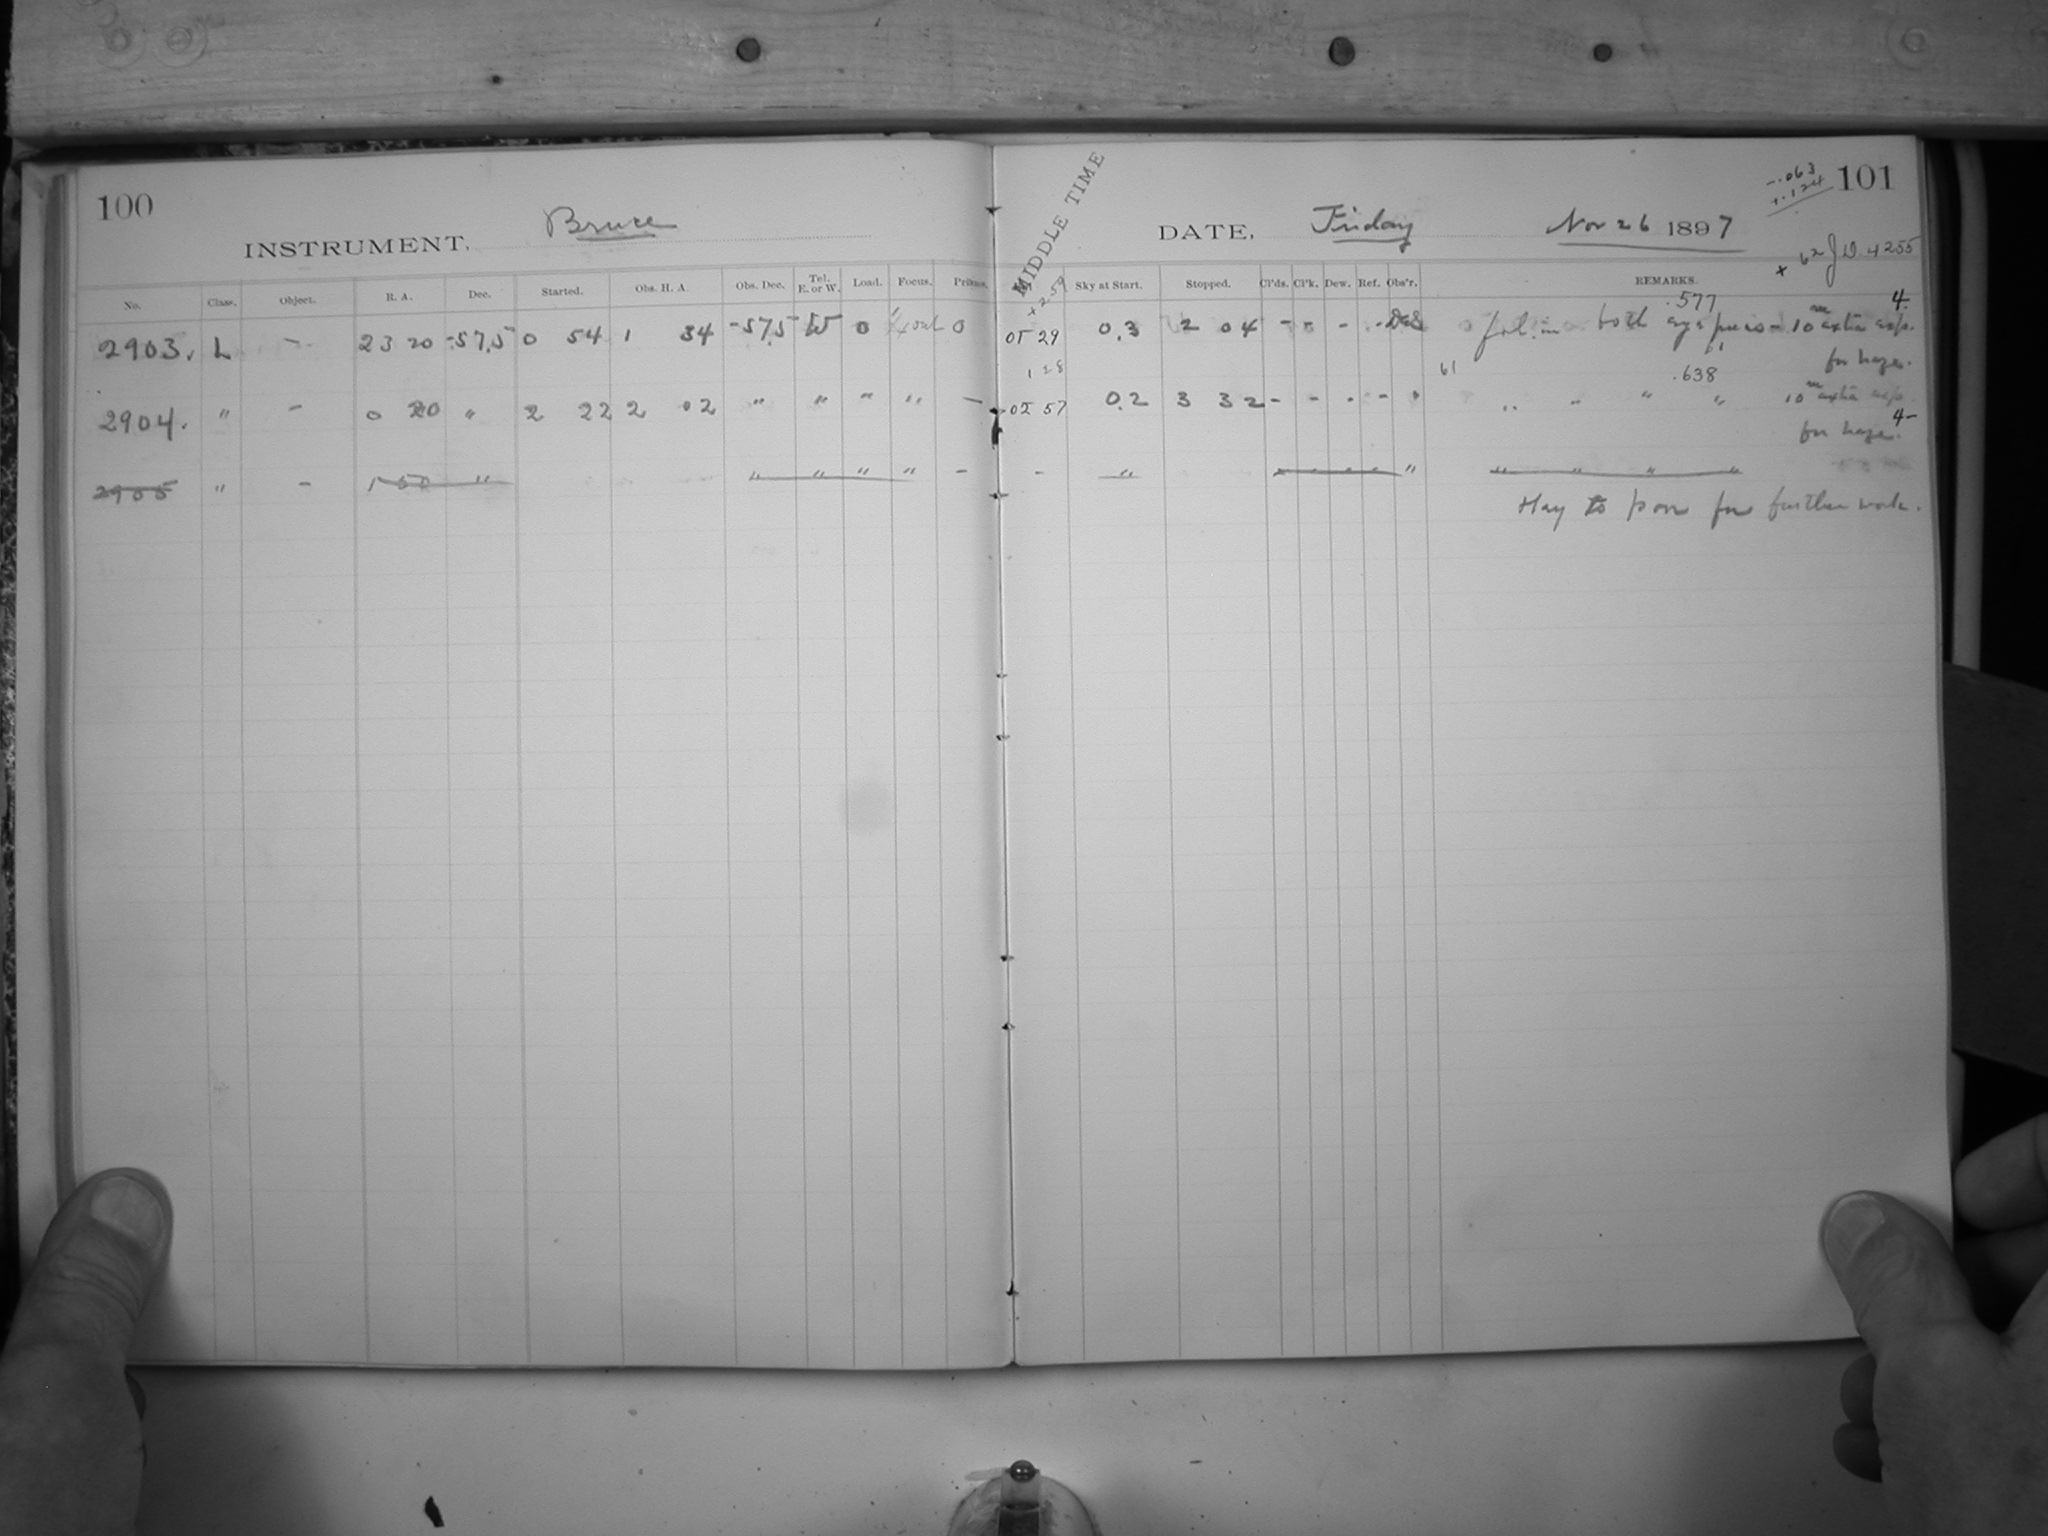 100
Bruce
INSTRUMENT,
No. Class. Object. R. A. Dec. Started. Obs. H. A. Obs. Dec. Tel. E. or W. Load. Focus.
2903. L - 23 20 -57.5 0 54 1 34 -57.5 W 0 0
2904. " - 0 20 " 2 22 2 02 " " " " -
2905 " - 1 50 " " " " " -
MIDDLE TIME
101
-.063
+.124
DATE, Friday Nov 26 1897
J.D. 4255
Sky at Start. Stopped. Cl'ds. Cl'k. Dew. Ref. Obs'r. REMARKS.
+ 259
.577 4.
05 29 0.3 2 04 - - - - both eye pieces - 10m extra exp.
for haze.
1 28 61 61
.638
02 57 0.2 3 32 - - - - " " " " " 10m extra exp.
4-
for haze.
- " " " " " "
Hazy to poor for further work.